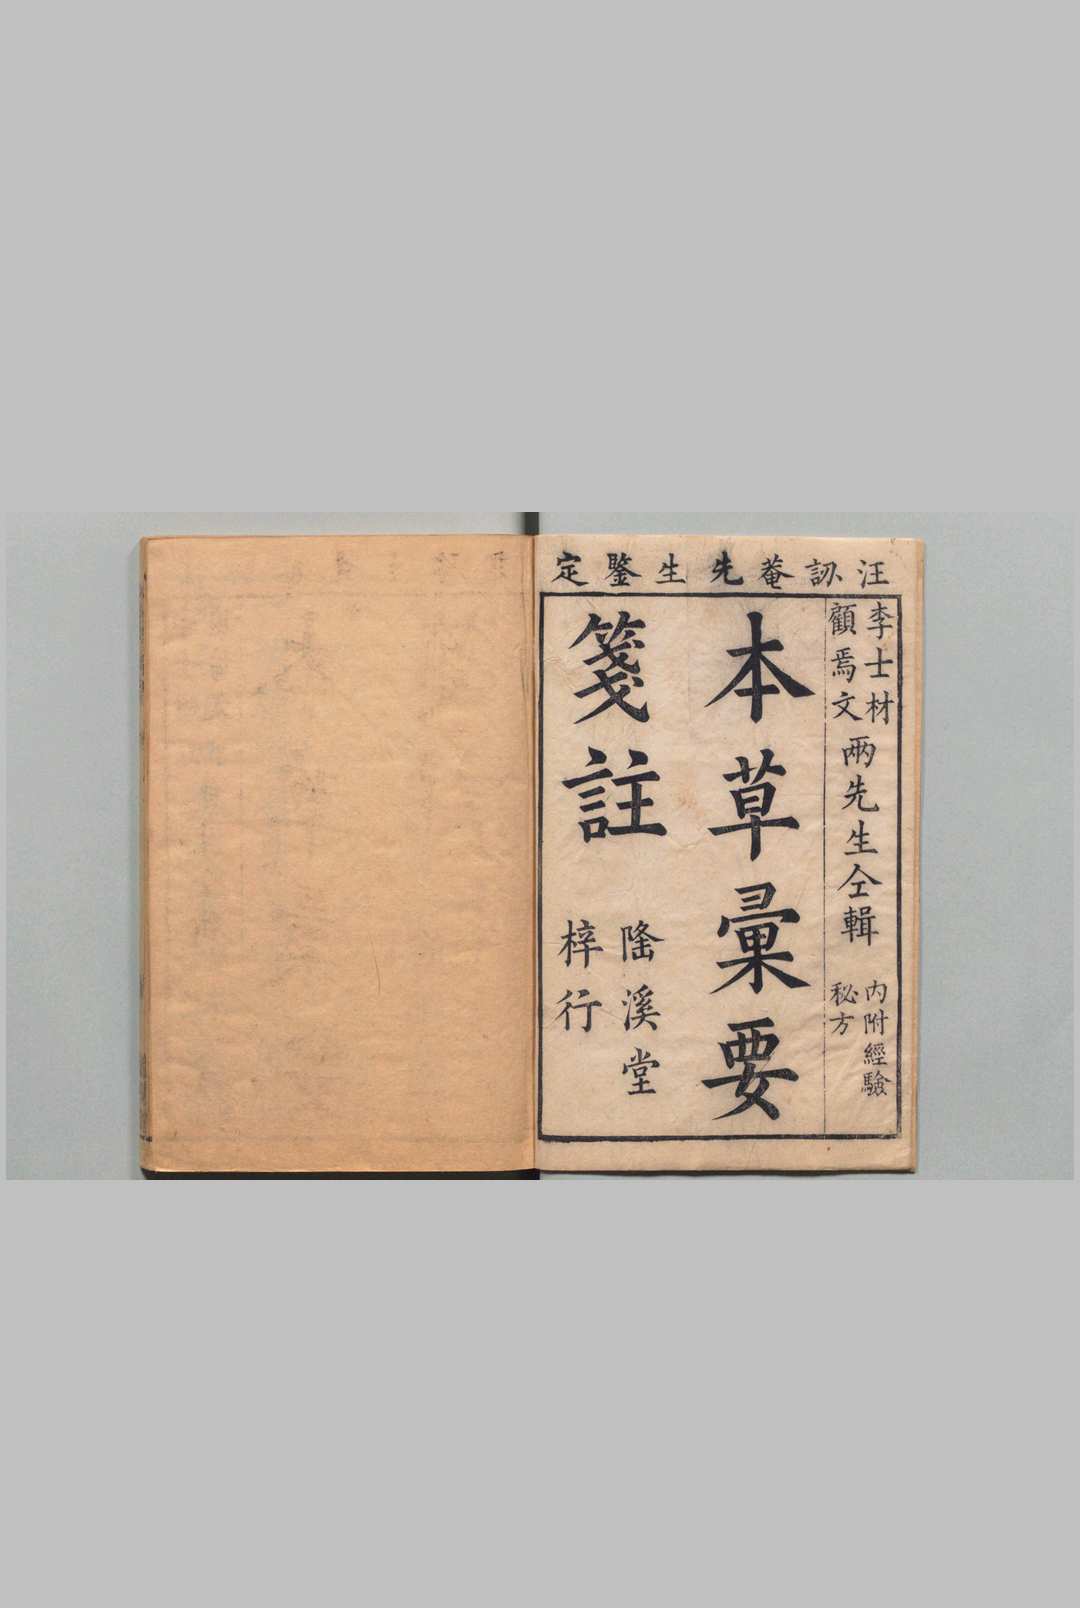 汪訒菴先生鑒定
李士材
顧焉文
兩先生仝輯
內附經驗
秘方
本草彙要
箋註
隆溪堂
梓行